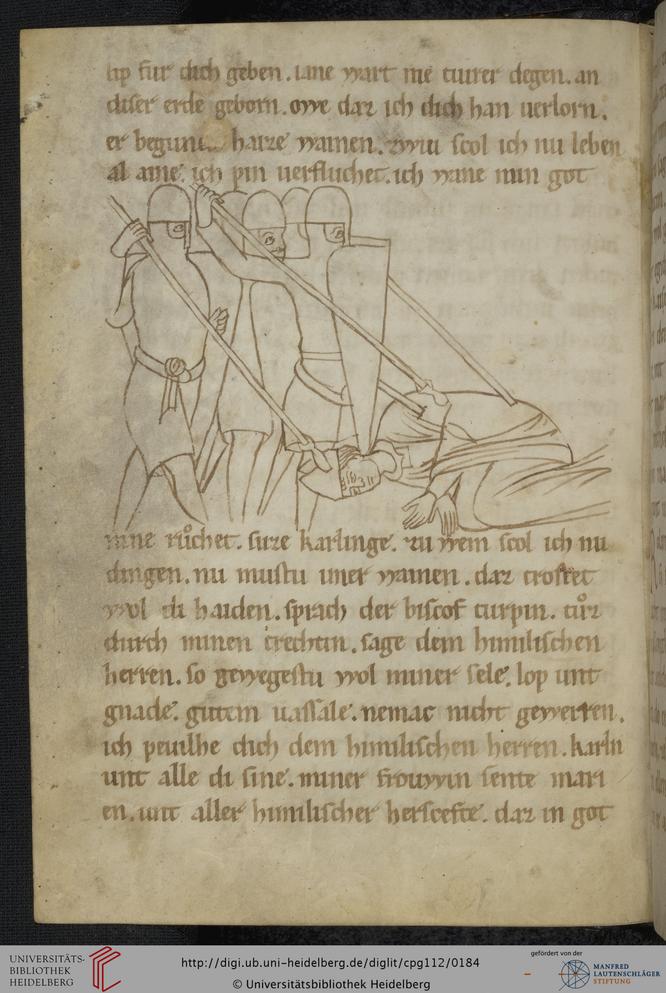 lip fur dich geben. iane wart me tiurer degen. an
diser erde geborn. owe daz ich dich han uerlorn.
er begunde haize wainen. zwiu scol ich nu leben
al aine. ich pin uerfluchet. ich wane min got
mine růchet. suze karlinge. zu wem scol ich nu
dingen. nu mustu imer wainen. daz trostet
wol di haiden. sprach der biscof turpin. tůz
durch minen trechtin. sage dem himilischen
herren. so gewegestu wol miner sele. lop unt
gnade. gutem uassale. nemac nicht gewerren.
ich peuilhe dich dem himilischen herren. karln
unt alle di sine. miner frouwin sente mari
en. unt aller himilischer herscefte. daz in got
UNIVERSITÄTS-
BIBLIOTHEK
HEIDELBERG
http://digi.ub.uni-heidelberg.de/diglit/cpg112/0184
© Universitätsbibliothek Heidelberg
gefördert von der
MANFRED
LAUTENSCHLÄGER
STIFTUNG